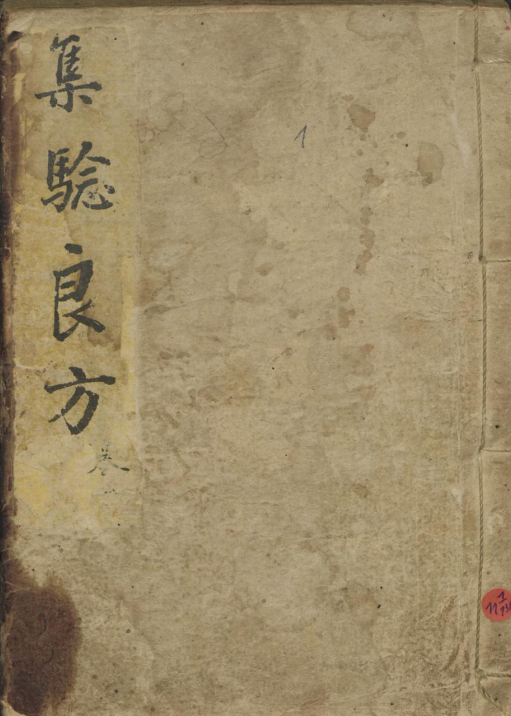 集騐良方
卷一
1